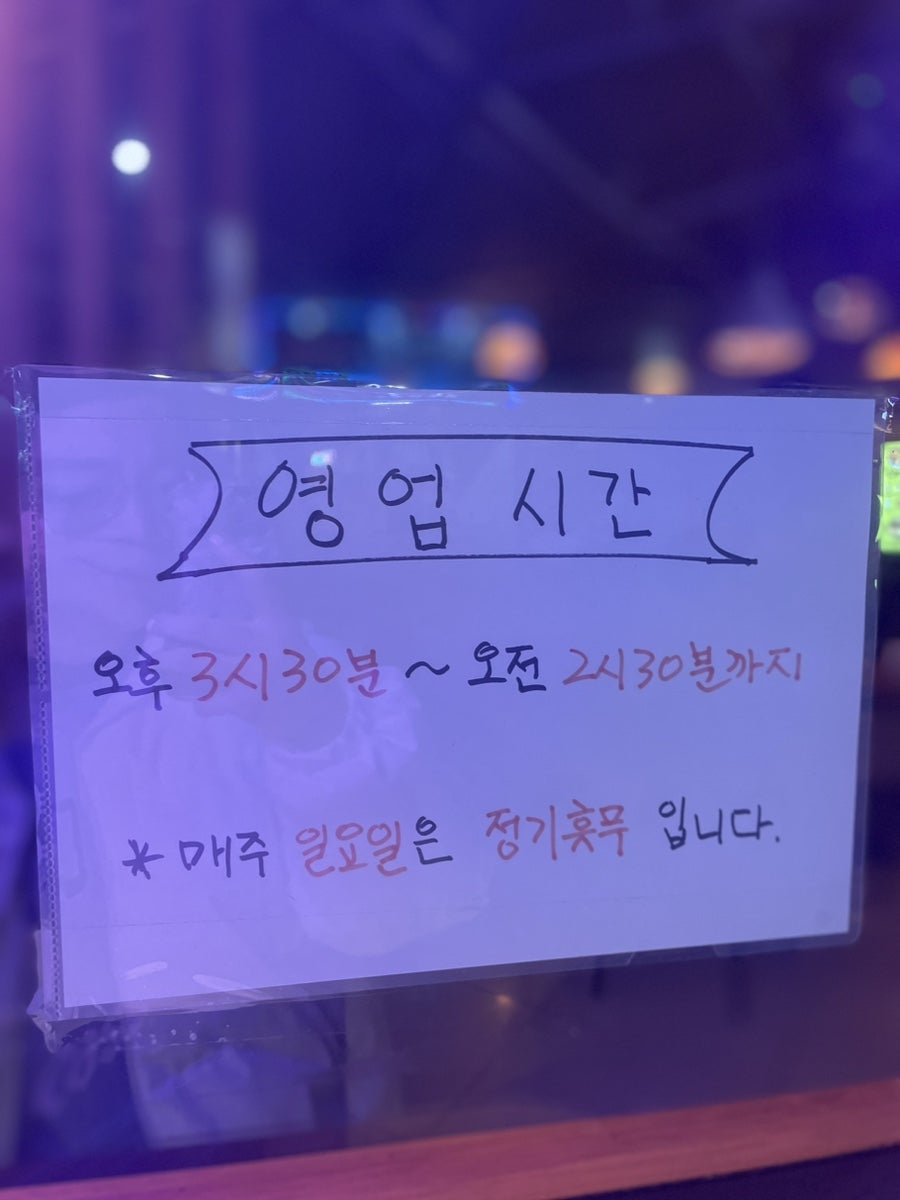 영업 시간
오후 3시30분 ~ 오전 2시30분까지
* 매주 일요일은 정기휴무 입니다.